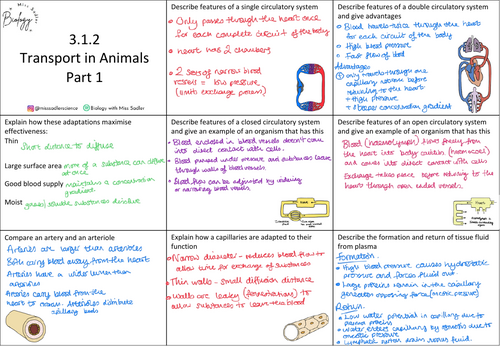 Biology with Miss Sadler
3.1.2
Transport in Animals
Part 1
@missadlerscience
Biology with Miss Sadler
Describe features of a single circulatory system
• Only passes through the heart once
for each complete circuit of the body
• heart has 2 chambers
• 2 sets of narrow blood
vessels = low pressure
(limits exchange process)
Describe features of a double circulatory system
and give advantages
• Blood travels twice through the heart
for each circuit of the body
• High blood pressure
• Fast flow of blood
Advantages:
① only travels through one
capillary network before
returning to the heart
↑ High pressure
↑ steeper concentration gradient
Explain how these adaptations maximise
effectiveness:
Thin
Short distance to diffuse
Large surface area more of a substance can diffuse
at once
Good blood supply maintains a concentration
gradient
Moist gases/soluble substances dissolve
Describe features of a closed circulatory system
and give an example of an organism that has this
• Blood enclosed in blood vessels doesn't come
into direct contact with cells.
• Blood pumped under pressure and substances leave
through walls of blood vessels.
• Blood flow can be adjusted by widening
or narrowing blood vessels.
Describe features of an open circulatory system
and give an example of an organism that has this
Blood (haemolymph) flows freely from
the heart into body cavities (haemocoel)
and comes into direct contact with cells.
Exchange takes place before returning to the
heart through open ended vessels.
Compare an artery and an arteriole
Arteries are larger than arterioles
Both carry blood away from the heart
Arteries have a wider lumen than
arterioles
Arteries carry blood from the
heart to Arterioles distribute
capillary beds
Explain how a capillaries are adapted to their
function
• Narrow diameter - reduces blood flow to
allow time for exchange of substances
• Thin walls - small diffusion distance
• Walls are leaky (fenestrations) to
allow substances to leave the blood
Describe the formation and return of tissue fluid
from plasma
Formation:
• High blood pressure causes hydrostatic
pressure and forces fluid out
• Large proteins remain in the capillary
generation opposing force (oncotic pressure)
Return:
• Low water potential in capillary due to
plasma proteins
• Water enters capillary by osmosis due to
oncotic pressure
• Lymphatic system drains excess fluid.